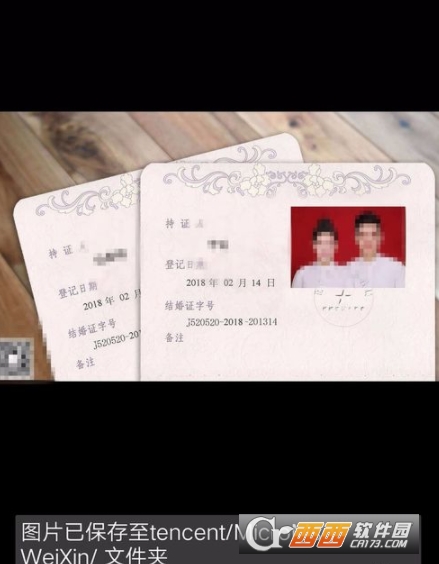 持证
登记日期
2018 年 02 月
结婚证字号
J520520-20
备注
持证
登记日
2018 年 02 月 14 日
结婚证字号
J520520-2018-201314
备注
图片已保存至tencent/Micro
WeiXin/ 文件夹
西西软件园
CR173.COM